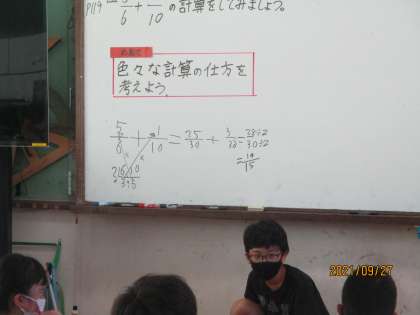 P119 5/6 + 1/10 の計算をしてみましょう。
めあて
色々な計算の仕方を
考えよう。
5/6 + 1/10 = 25/30 + 3/30 = 28÷2/30÷2
= 14/15
2)6 10
3 5
2021/09/27